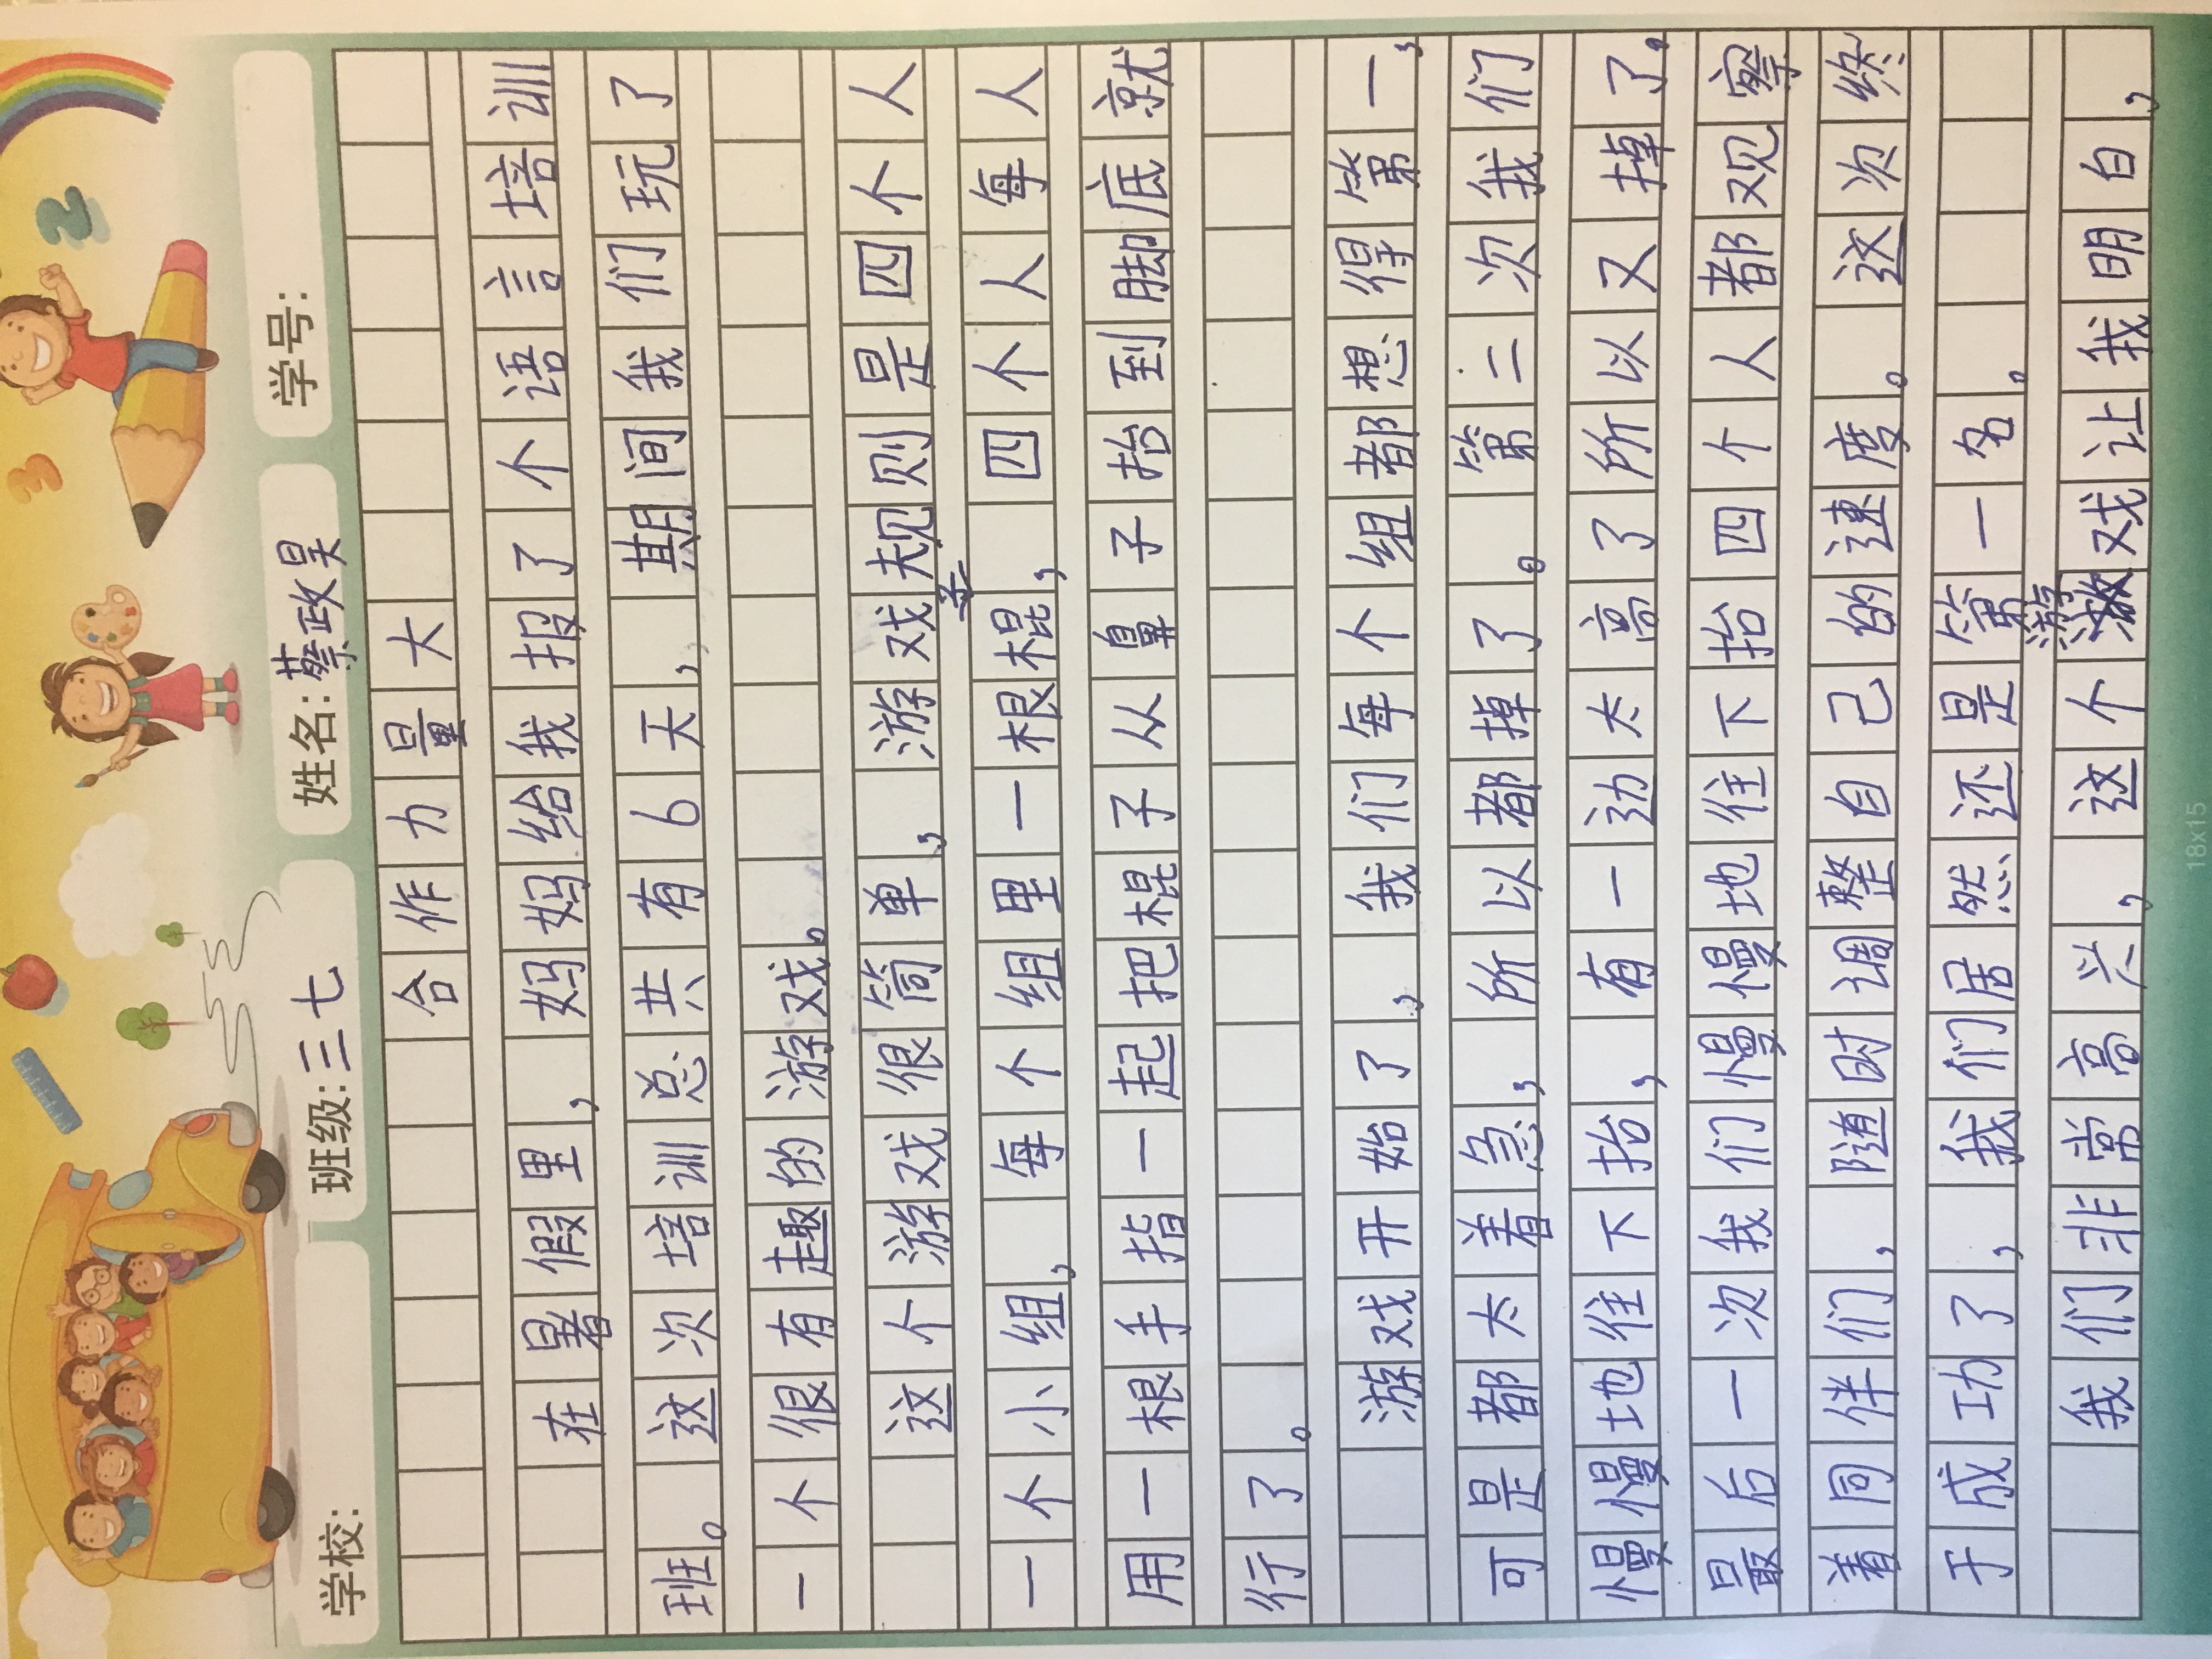 学校: 班级:三七 姓名:蔡政昊 学号:
合作力量大
在暑假里,妈妈给我报了个语言培训
班。这次培训总共有6天,期间我们玩了
一个很有趣的游戏。
这个游戏很简单,游戏规则是四个人
一个小组,每个组里一根棍,四个人每人
用一根手指一起把棍子从鼻子抬到脚底就
行了。
游戏开始了,我们每个组都想得第一,
可是都太着急,所以都掉了。第二次我们
慢慢地往下抬,有一边太高了所以又掉了。
最后一次我们慢慢地往下抬四个人都观察
着同伴们,随时调整自己的速度。这次终
于成功了,我们居然还是第一名。
我们非常高兴,这个游戏让我明白,
18x15